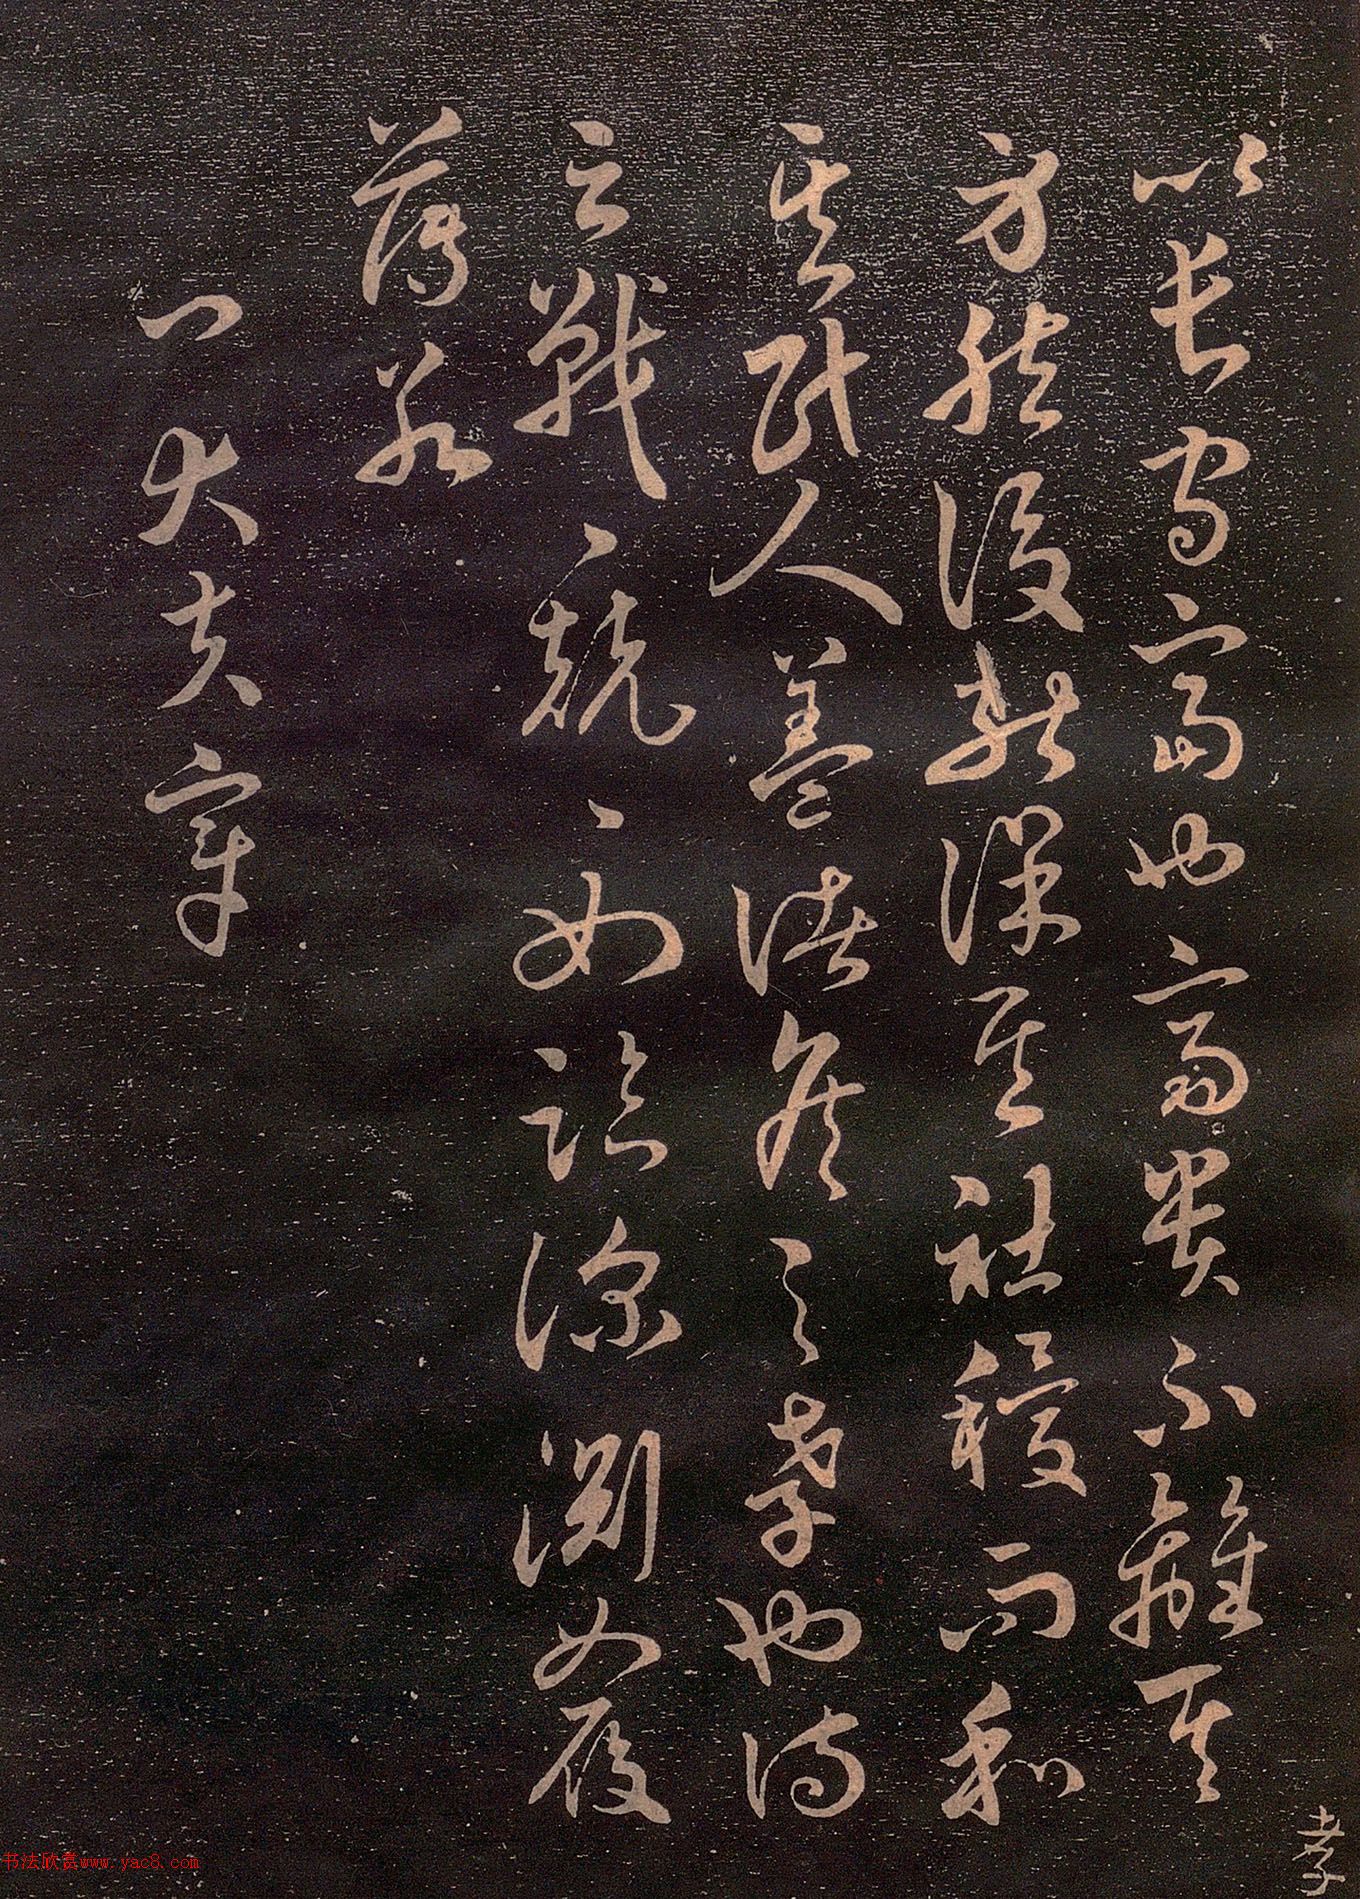 以長守富也富貴不離其
身然後能保其社稷而和
其民人蓋諸侯之孝也詩
云戰〻兢〻如臨深淵如履
薄冰
卿大夫章
孝
书法欣赏www.yac8.com